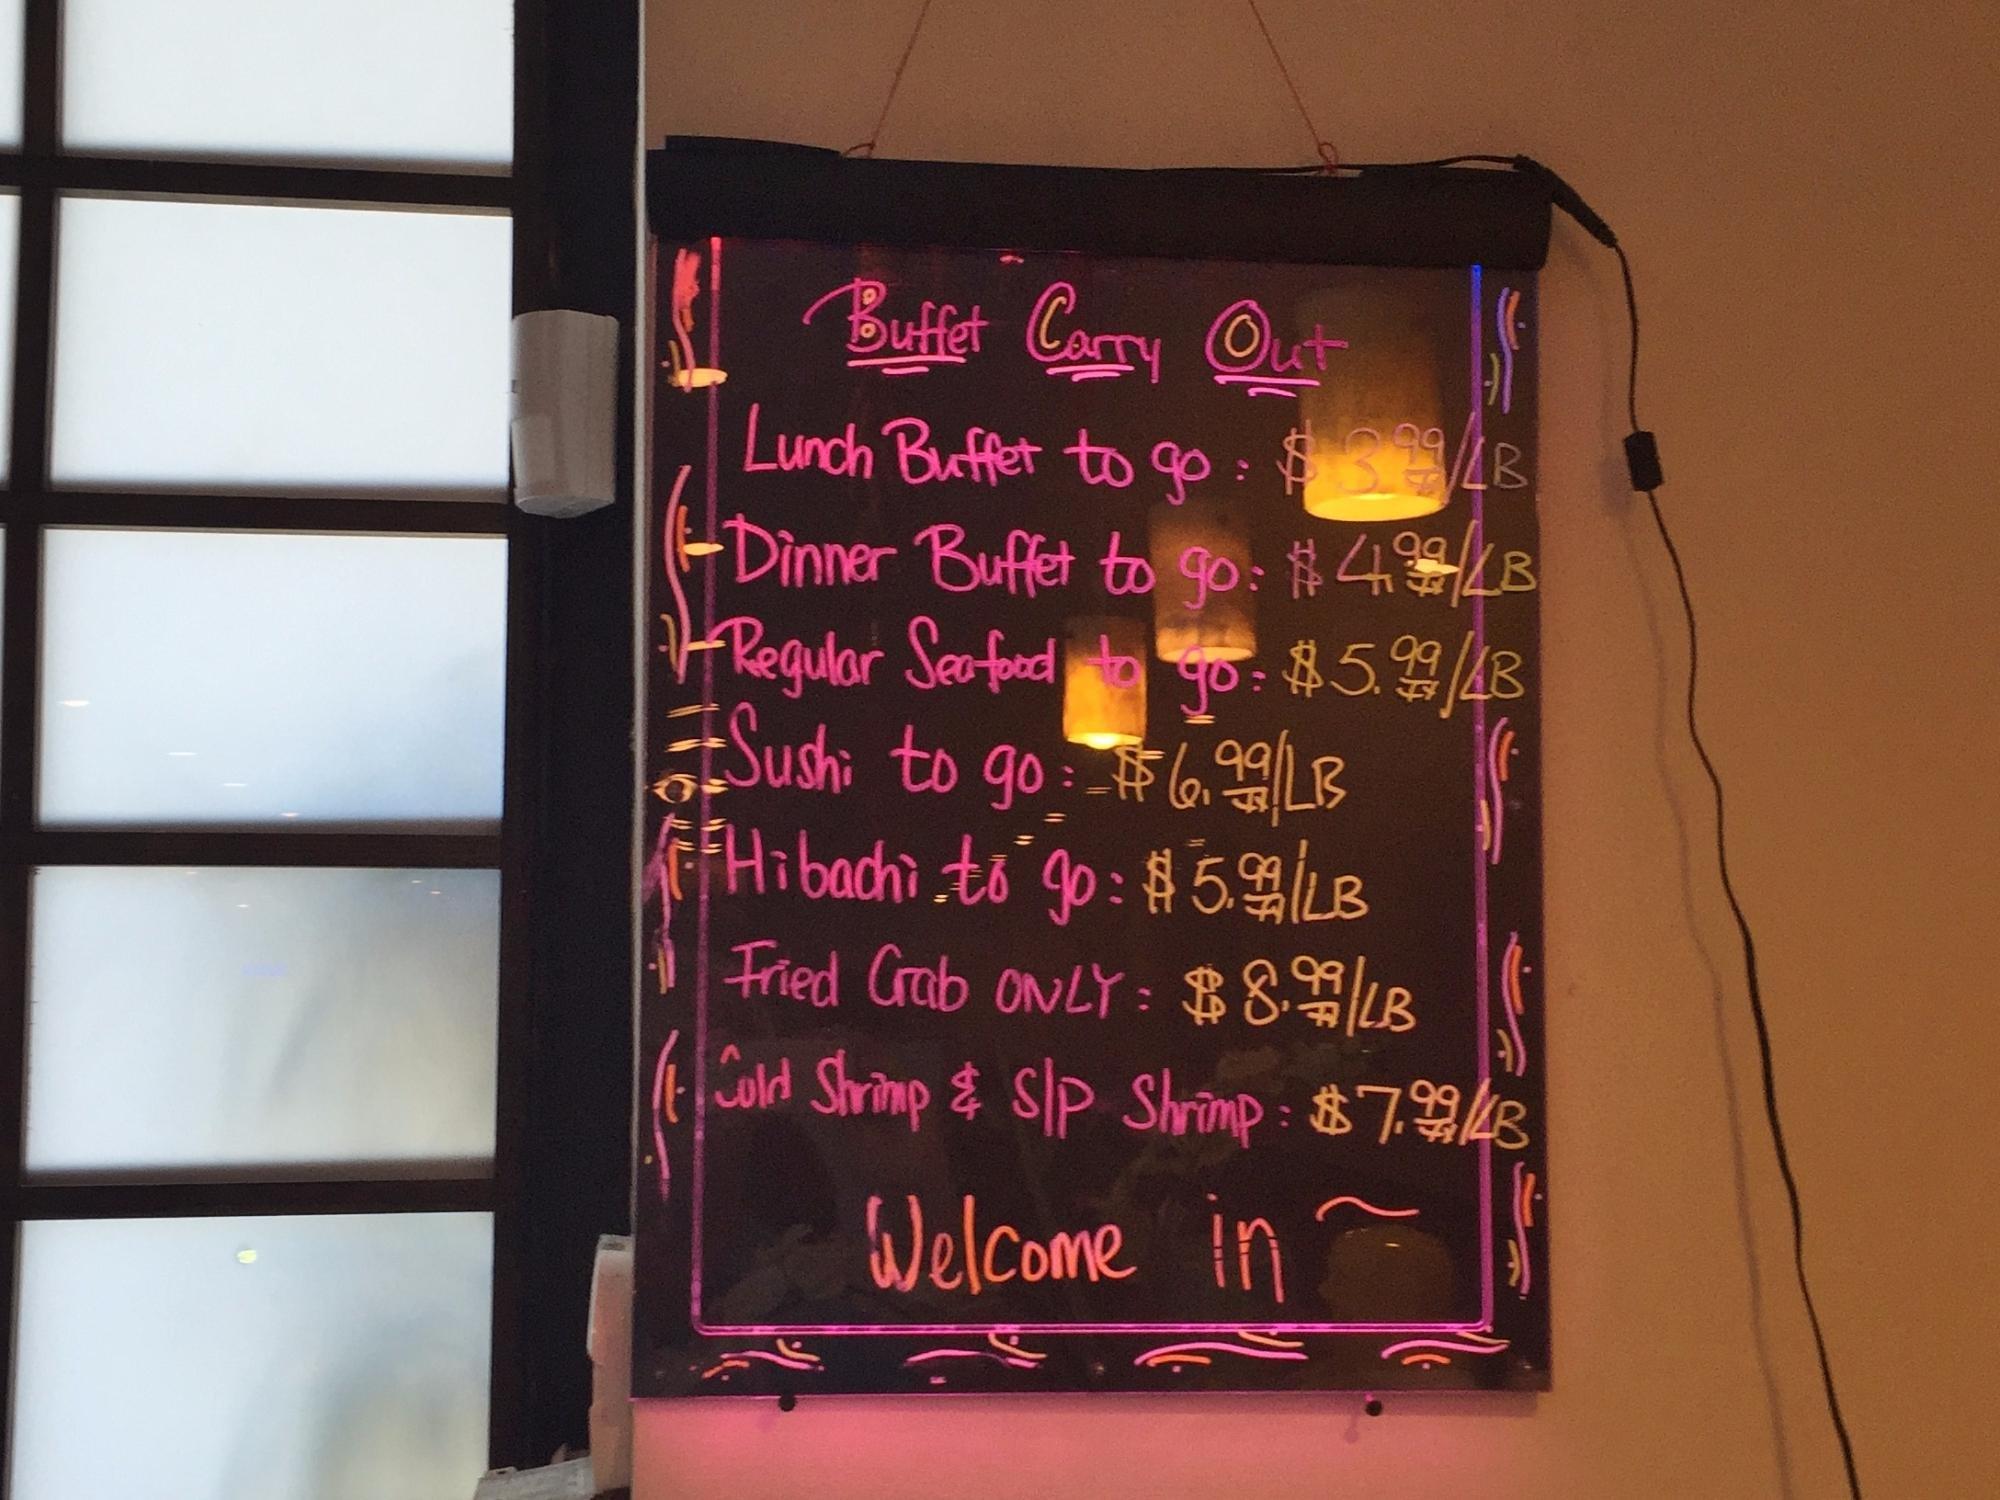 Buffet Carry Out
Lunch Buffet to go : $3.99/LB
Dinner Buffet to go : $4.99/LB
Regular Seafood to go : $5.99/LB
Sushi to go : $6.99/LB
Hibachi to go : $5.99/LB
Fried Crab ONLY : $8.99/LB
Cold Shrimp & S/P Shrimp : $7.99/LB
Welcome in ~